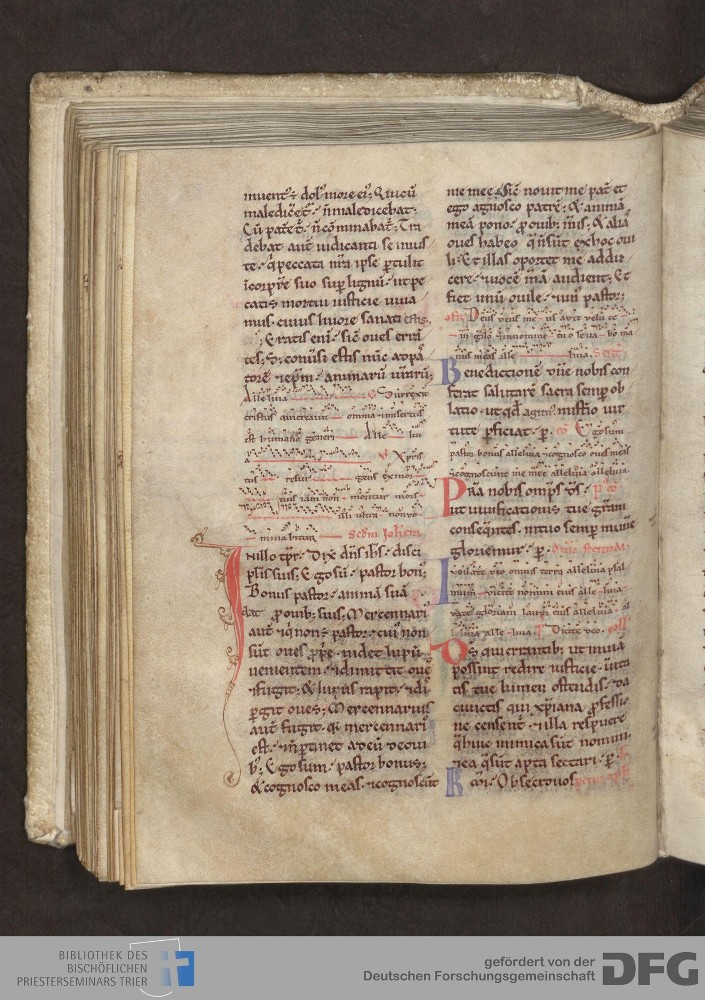 inuent̄ ÷ dol' in ore ei'; Qui cū
maledicet̄ · n̄ maledicebat ·
Cū patet̄ · n̄ cōminabat̄ ; Tra
debat aut̄ iudicanti se inius
te · q̇ peccata nr̄a ipse ptulit
ī corpore suo sup lignū · ut pec
catis mortui iusticie uiua
mus · cuius liuore sanati estis .
Eratis eni · sic̄ oues erran
tes ; S; cōuersi estis nūc ad pa
torē · epm̄ · animarū urarū ;
Alleluia Surrexit
cristus qui creauit omnia · misertus
est humano generi Alle lu
a Xpris
tus resur gens ex mor
tuis iam non moritur mors
illi ultra non do
minabitur Scdm Iohem
In illo tp̄r · Dix̄ dn̄s ih̄s · disci
pl'is suis ; Ego sū · pastor bon' ;
Bonus pastor · animā suā
dat · p ouib; suis ; Mercennari'
aut̄ · q̇ non ÷ pastor · cui' non
sūt oues pprie · uidet lupū
uenientem · dimittit oues
fugit ; & lupus rapit · di
pgit oues ; Mercennarius
aut̄ fugit · q̇ mercennari'
est · n̄ ptinet ad eū de oui
b; ; Ego sum · pastor bonus ;
& cognosco meas · cognoscūt
me mee ; Sic̄ nouit me pat̄ et
ego agnosco patrē ; & animā
meā pono · p ouib; m̄is ; & aliā
oues habeo q̄ n̄ sūt ex hoc oui
li ; Et illas oportet me addu
cere · uocē m̄ā audient ; Et
fiet unū ouile · un' pastor ;
Deus deus me us ad te de luce
in nomine tuo leua bo ma
nus meas alle luia
Benedictionē dn̄e nobis con
ferat salutarē sacra semp ob
latio · ut qd̄ agim' misterio uir
tute pficiat · p. cō Ego sum
pastor bonus alleluia · cognosco oues meas
cognoscunt me mee alleluia alleluia .
Pra nobis omps ds̄ ·
ut uiuificationis tue grām
consequētes · in tuo semp mune
gloriemur · p.
Iubilate deo omnis terra alleluia psal
mum dicite nomini eius alle luia
date gloriam laudi eius alleluia al
leluia alle luia · Dicite deo · coll
Ds̄ qui errantib; ut in uiā
possint redire iusticie · uita
tis tue lumen ostendis · da
cunctis qui xpiana pfessio
ne censent̄ · illa respuere
q̄ huic inimica sūt nomini
ea q̄ sūt apta sectari · p.
Kmi · Obsecro uos
BIBLIOTHEK DES
BISCHÖFLICHEN
PRIESTERSEMINARS TRIER
gefördert von der
Deutschen Forschungsgemeinschaft
DFG